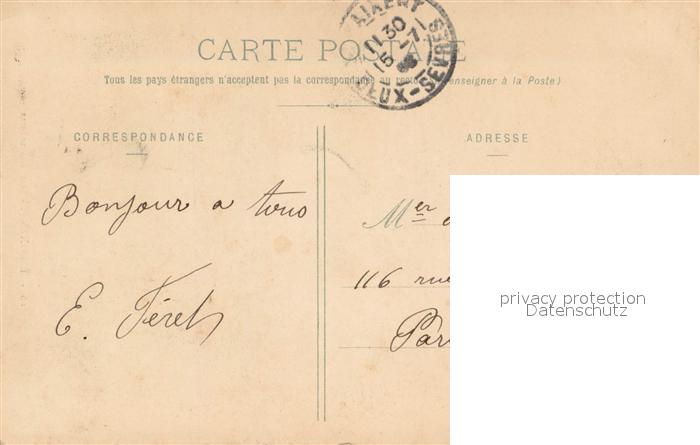 CARTE POSTALE
Tous les pays étrangers n'acceptent pas la correspondance au recto (Se renseigner à la Poste)
11 30
15 - 7
DEUX-SÈVRES
CORRESPONDANCE
ADRESSE
Bonjour a tous
E. Féret
Mer
116 rue
Par
privacy protection
Datenschutz